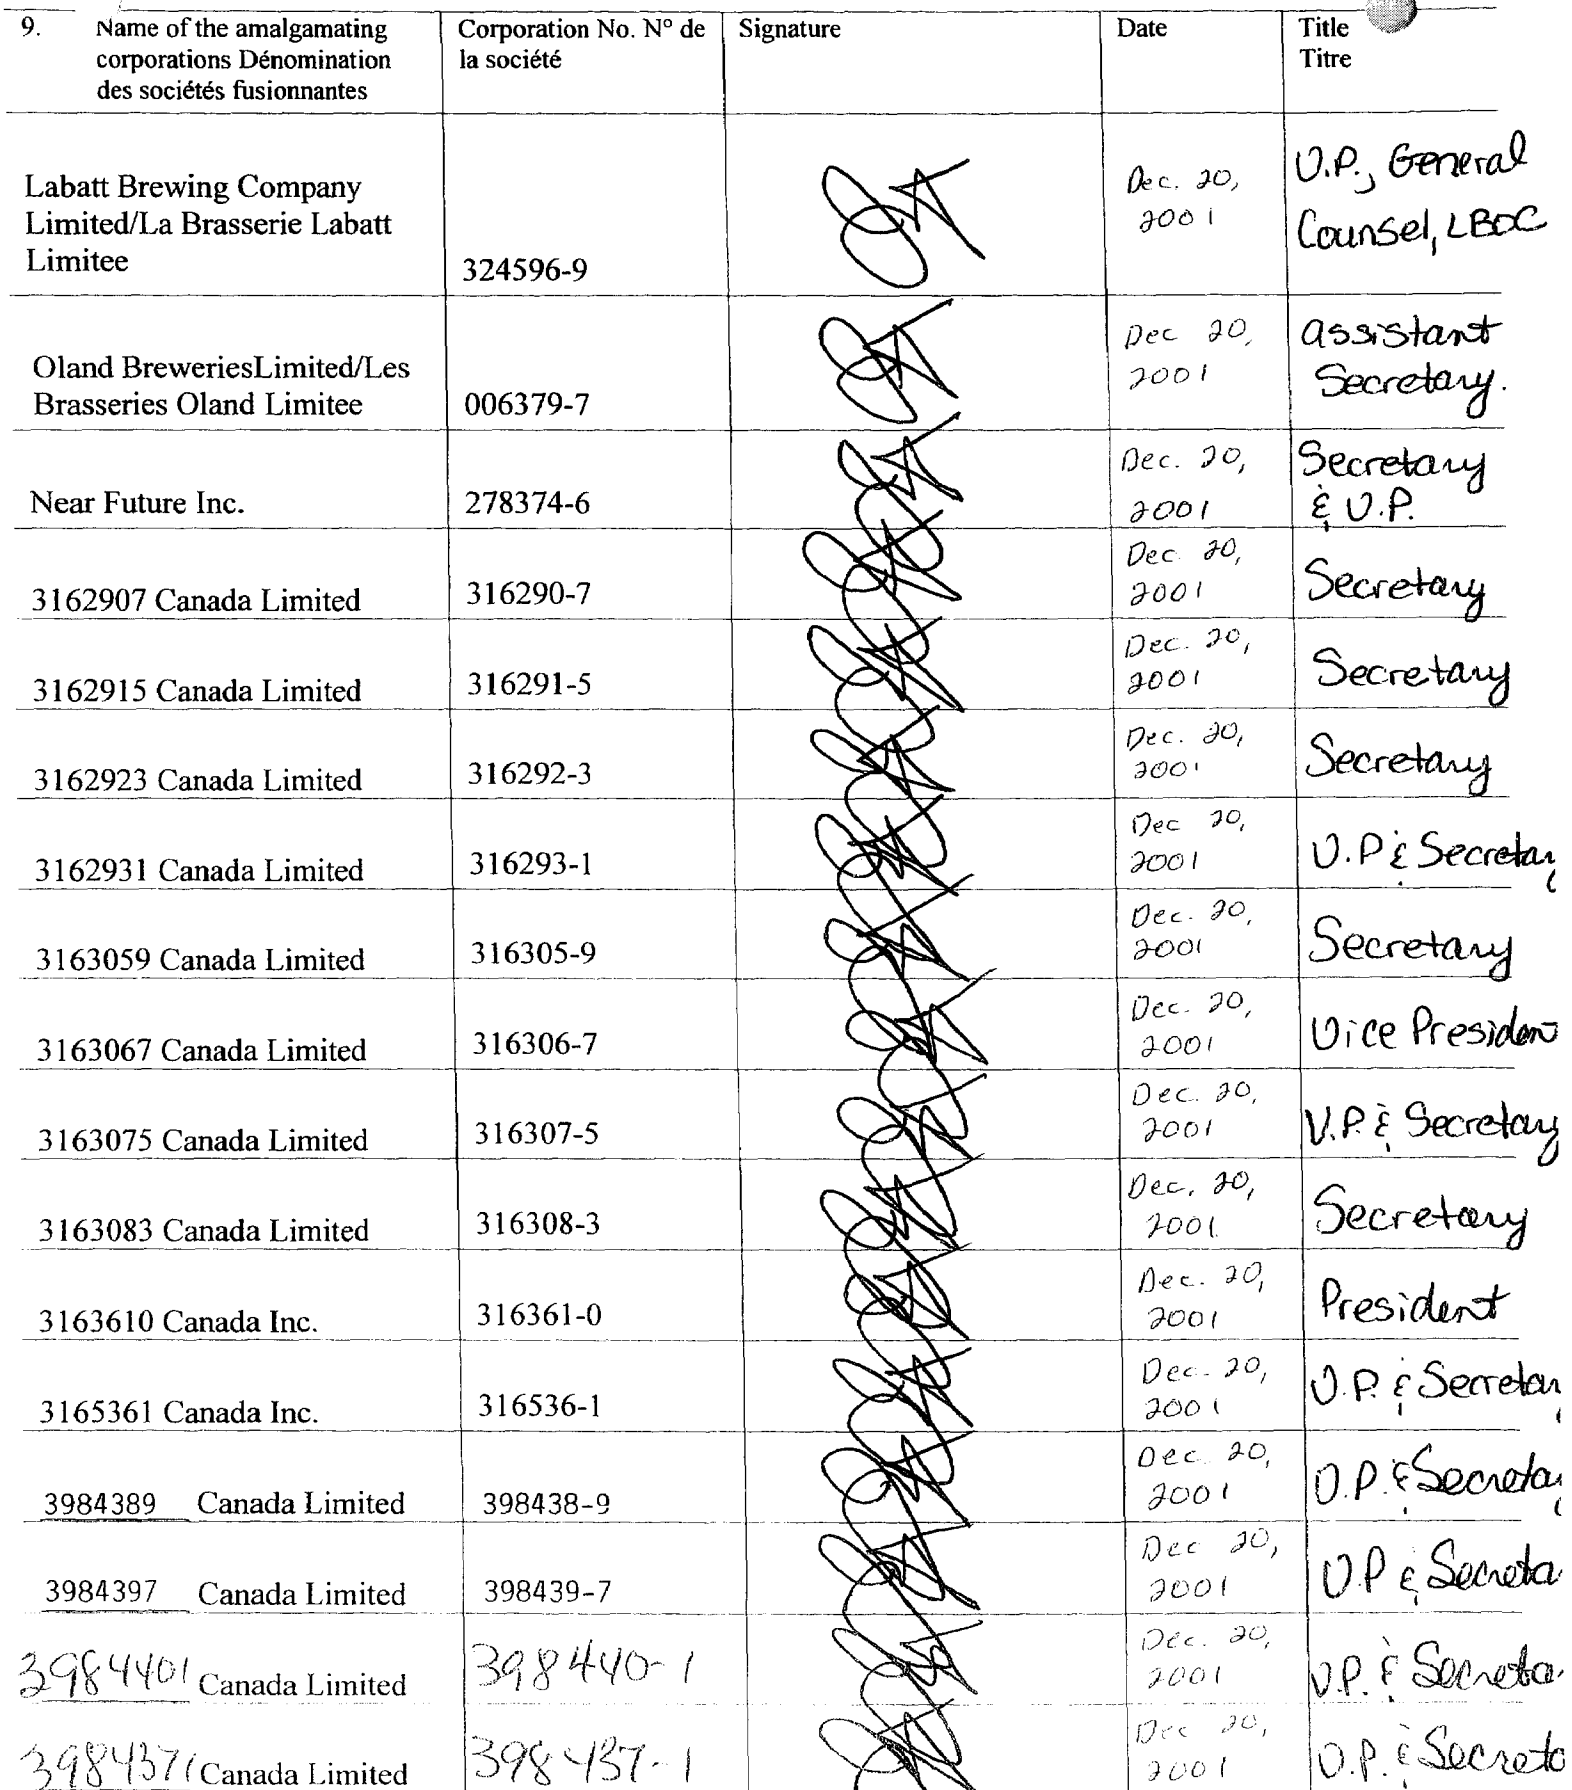 9. Name of the amalgamating corporations Dénomination des sociétés fusionnantes
Corporation No. Nº de la société
Signature
Date
Title
Titre
Labatt Brewing Company
Limited/La Brasserie Labatt
Limitee
324596-9
Dec. 20,
2001
V.P., General
Counsel, LBOC
Oland BreweriesLimited/Les
Brasseries Oland Limitee
006379-7
Dec 20,
2001
Assistant
Secretary.
Near Future Inc.
278374-6
Dec. 20,
2001
Secretary
& V.P.
3162907 Canada Limited
316290-7
Dec. 20,
2001
Secretary
3162915 Canada Limited
316291-5
Dec. 20,
2001
Secretary
3162923 Canada Limited
316292-3
Dec. 20,
2001
Secretary
3162931 Canada Limited
316293-1
Dec 20,
2001
V.P & Secretary
3163059 Canada Limited
316305-9
Dec. 20,
2001
Secretary
3163067 Canada Limited
316306-7
Dec. 20,
2001
Vice President
3163075 Canada Limited
316307-5
Dec. 20,
2001
V.P. & Secretary
3163083 Canada Limited
316308-3
Dec. 20,
2001
Secretary
3163610 Canada Inc.
316361-0
Dec. 20,
2001
President
3165361 Canada Inc.
316536-1
Dec. 20,
2001
V.P. & Secretary
3984389 Canada Limited
398438-9
Dec. 20,
2001
V.P. & Secretar
3984397 Canada Limited
398439-7
Dec 20,
2001
V.P & Secreta
3984401 Canada Limited
398440-1
Dec. 20,
2001
V.P. & Secreta
3984371 Canada Limited
398437-1
Dec 20,
2001
V.P. & Secreta